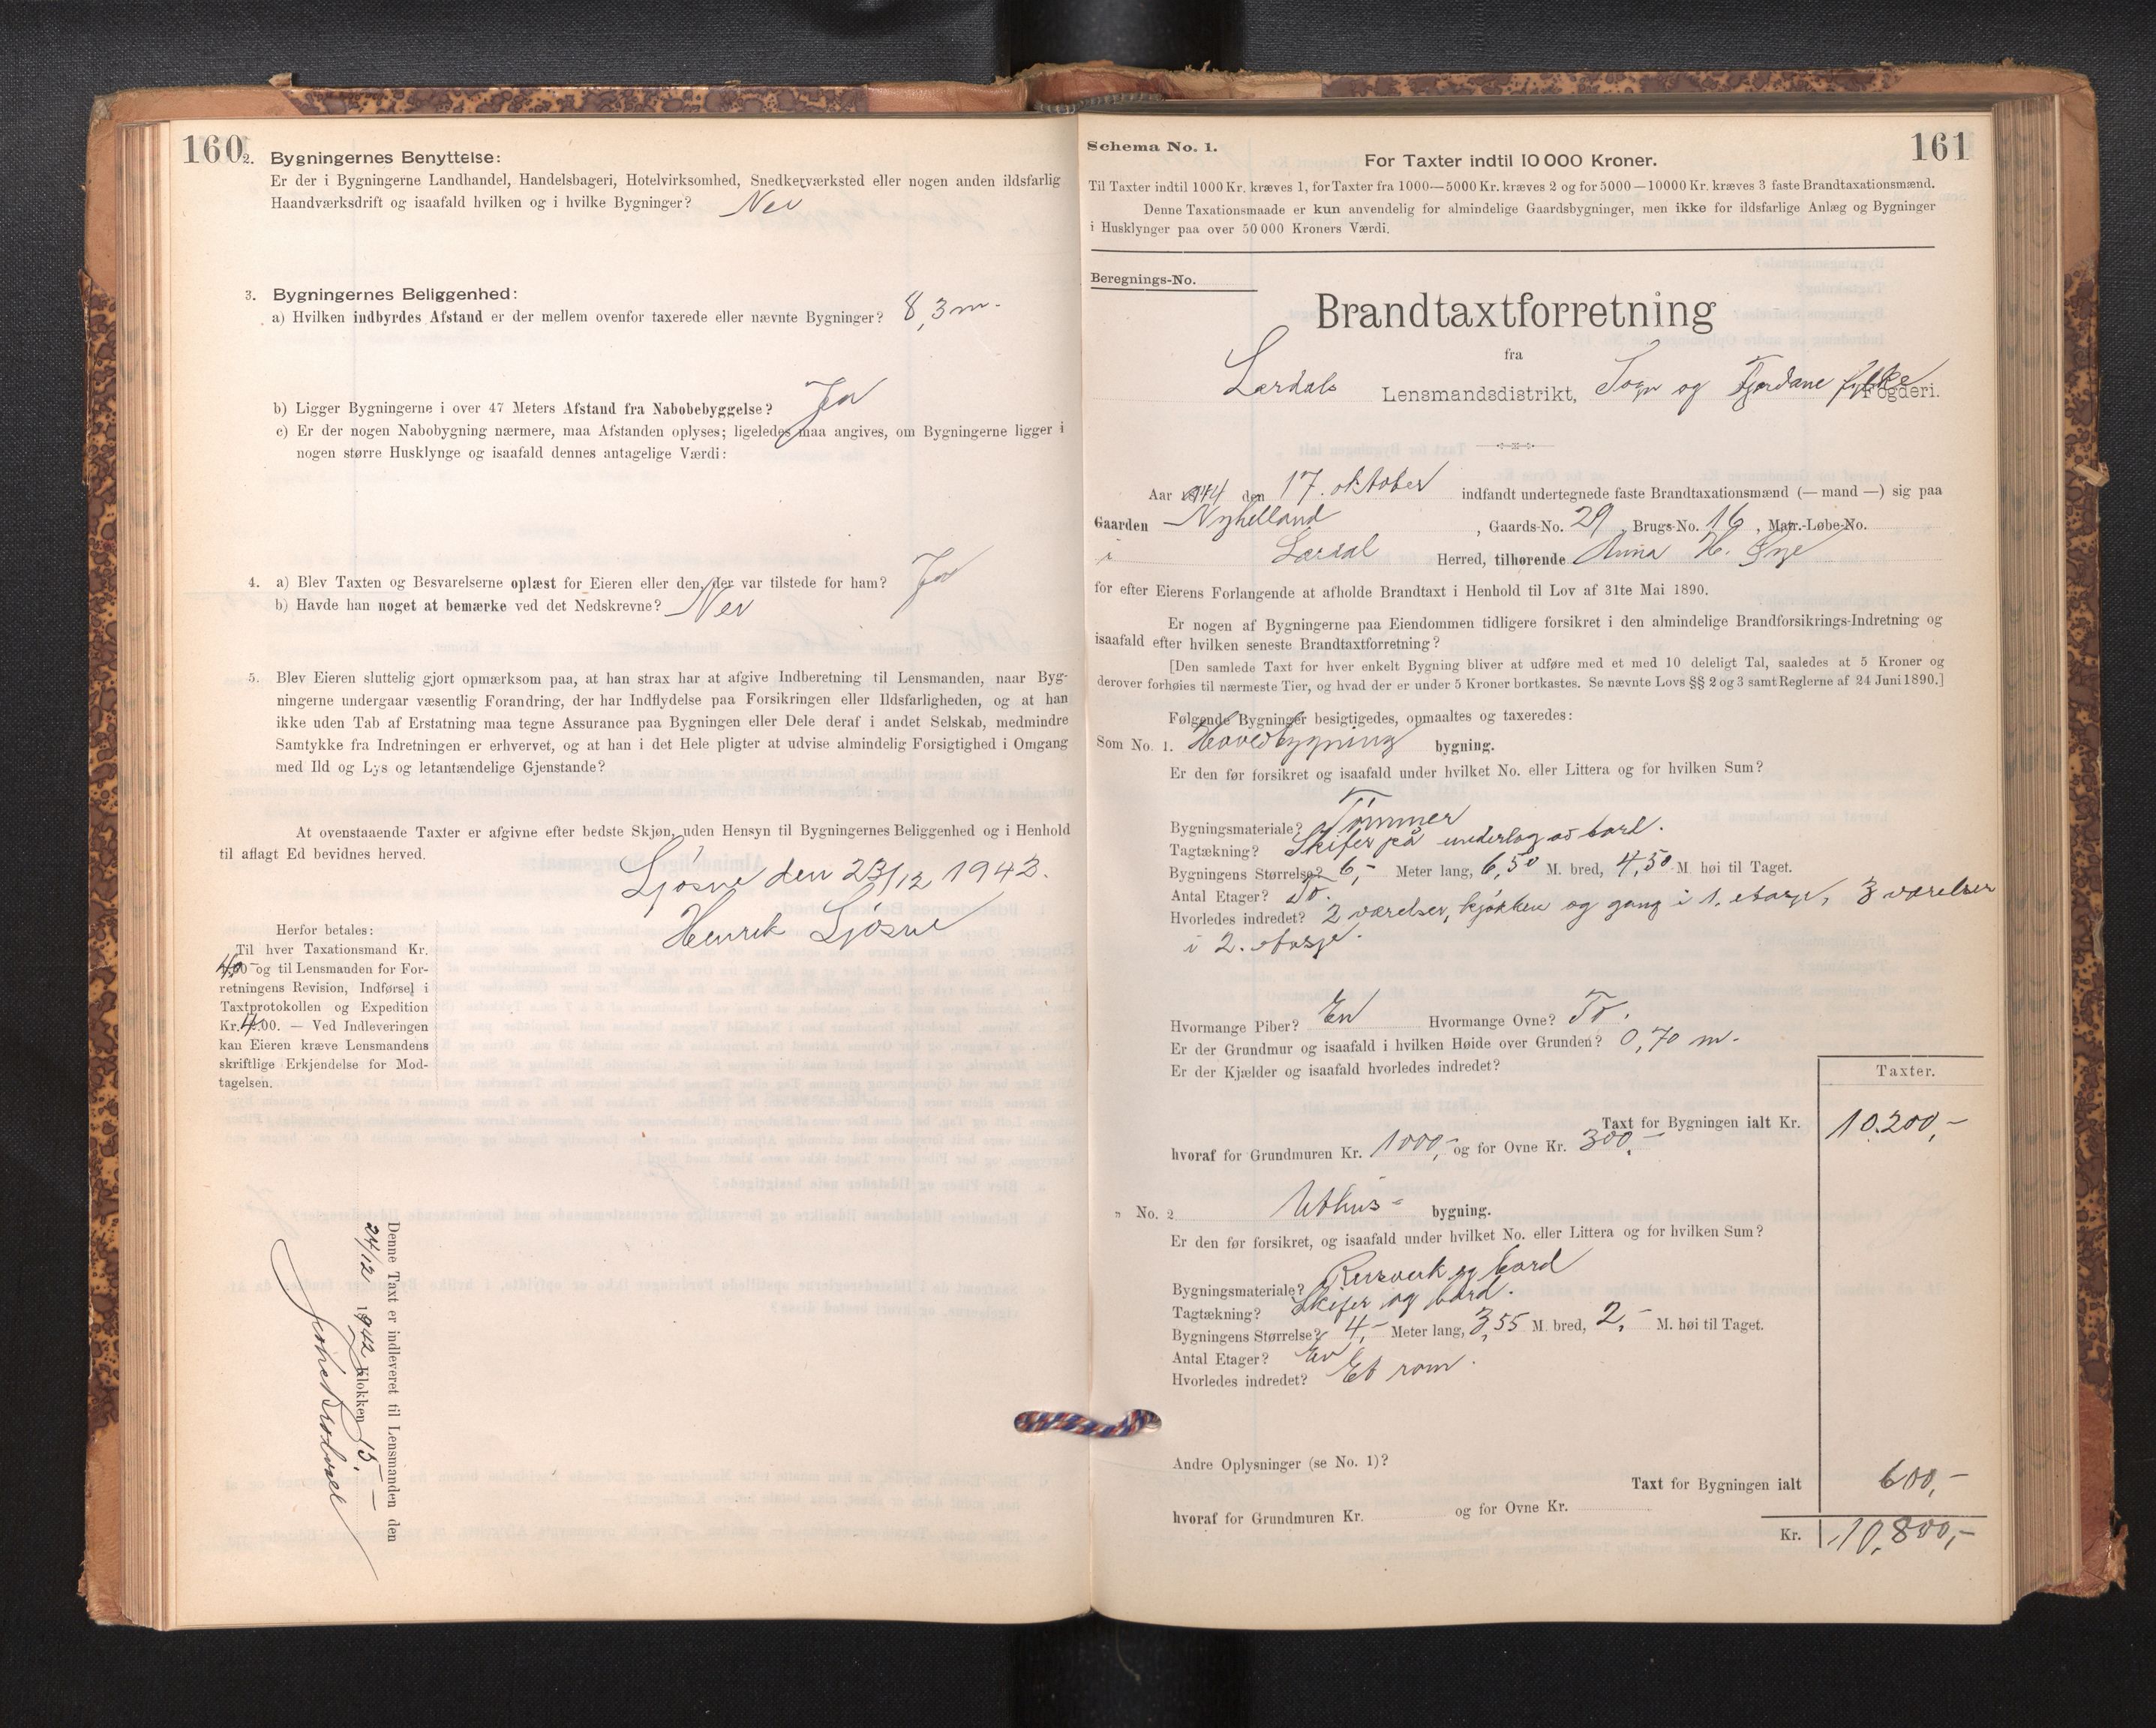 160
2. Bygningernes Benyttelse:
Er der i Bygningerne Landhandel, Handelsbageri, Hotelvirksomhed, Snedkerværksted eller nogen anden ildsfarlig
Haandværksdrift og isaafald hvilken og i hvilke Bygninger? Nei
3. Bygningernes Beliggenhed:
a) Hvilken indbyrdes Afstand er der mellem ovenfor taxerede eller nævnte Bygninger? 8,3 m.
b) Ligger Bygningerne i over 47 Meters Afstand fra Nabobebyggelse? Ja
c) Er der nogen Nabobygning nærmere, maa Afstanden oplyses; ligeledes maa angives, om Bygningerne ligger i
nogen større Husklynge og isaafald dennes antagelige Værdi:
4. a) Blev Taxten og Besvarelserne oplæst for Eieren eller den, der var tilstede for ham? Ja
b) Havde han noget at bemærke ved det Nedskrevne? Nei
5. Blev Eieren sluttelig gjort opmærksom paa, at han strax har at afgive Indberetning til Lensmanden, naar Byg-
ningerne undergaar væsentlig Forandring, der har Indflydelse paa Forsikringen eller Ildsfarligheden, og at han
ikke uden Tab af Erstatning maa tegne Assurance paa Bygningen eller Dele deraf i andet Selskab, medmindre
Samtykke fra Indretningen er erhvervet, og at han i det Hele pligter at udvise almindelig Forsigtighed i Omgang
med Ild og Lys og letantændelige Gjenstande?
At ovenstaaende Taxter er afgivne efter bedste Skjøn, uden Hensyn til Bygningernes Beliggenhed og i Henhold
til aflagt Ed bevidnes herved.
Ljøsne den 23/12 1942.
Henrik Ljøsne
Herfor betales:
Til hver Taxationsmand Kr.
4,00 og til Lensmanden for For-
retningens Revision, Indførsel i
Taxtprotokollen og Expedition
Kr. 4.00. — Ved Indleveringen
kan Eieren kræve Lensmandens
skriftlige Erkjendelse for Mod-
tagelsen.
Denne Taxt er indleveret til Lensmanden den
24/12 1942 Klokken 15.—
Schema No. 1.
161
For Taxter indtil 10 000 Kroner.
Til Taxter indtil 1000 Kr. kræves 1, for Taxter fra 1000—5000 Kr. kræves 2 og for 5000—10000 Kr. kræves 3 faste Brandtaxationsmænd.
Denne Taxationsmaade er kun anvendelig for almindelige Gaardsbygninger, men ikke for ildsfarlige Anlæg og Bygninger
i Husklynger paa over 50 000 Kroners Værdi.
Beregnings-No.
Brandtaxtforretning
fra
Lærdals Lensmandsdistrikt, Sogn og Fjordane fylke Fogderi.
Aar 1944 den 17. oktober indfandt undertegnede faste Brandtaxationsmænd (— mand —) sig paa
Gaarden Nyhelland, Gaards-No. 29, Brugs-No. 16, Matr.-Løbe-No.
i Lærdal Herred, tilhørende Anna H. Øye
for efter Eierens Forlangende at afholde Brandtaxt i Henhold til Lov af 31te Mai 1890.
Er nogen af Bygningerne paa Eiendommen tidligere forsikret i den almindelige Brandforsikrings-Indretning og
isaafald efter hvilken seneste Brandtaxtforretning?
[Den samlede Taxt for hver enkelt Bygning bliver at udføre med et med 10 deleligt Tal, saaledes at 5 Kroner og
derover forhøies til nærmeste Tier, og hvad der er under 5 Kroner bortkastes. Se nævnte Lovs §§ 2 og 3 samt Reglerne af 24 Juni 1890.]
Følgende Bygninger besigtigedes, opmaaltes og taxeredes:
Som No. 1. Hovedbygning bygning.
Er den før forsikret og isaafald under hvilket No. eller Littera og for hvilken Sum?
Bygningsmateriale? Tömmer
Tagtækning? Skifer på underlag av bord.
Bygningens Størrelse? 6,- Meter lang, 6,50 M. bred, 4,50 M. høi til Taget.
Antal Etager? To.
Hvorledes indredet? 2 værelser, kjøkken og gang i 1. etasje, 3 værelser
i 2. etasje.
Hvormange Piber? En Hvormange Ovne? To.
Er der Grundmur og isaafald i hvilken Høide over Grunden? 0,70 m.
Er der Kjælder og isaafald hvorledes indredet?
Taxter.
Taxt for Bygningen ialt Kr. 10.200,-
hvoraf for Grundmuren Kr. 1000,- og for Ovne Kr. 300,-
„ No. 2 Uthus- bygning.
Er den før forsikret, og isaafald under hvilket No. eller Littera og for hvilken Sum?
Bygningsmateriale? Reisverk og bord
Tagtækning? Skifer og bord.
Bygningens Størrelse? 4,- Meter lang, 3,55 M. bred, 2,- M. høi til Taget.
Antal Etager? En
Hvorledes indredet? Et rom.
Andre Oplysninger (se No. 1)?
Taxt for Bygningen ialt 600,-
hvoraf for Grundmuren Kr. og for Ovne Kr.
Kr. 10,800,-